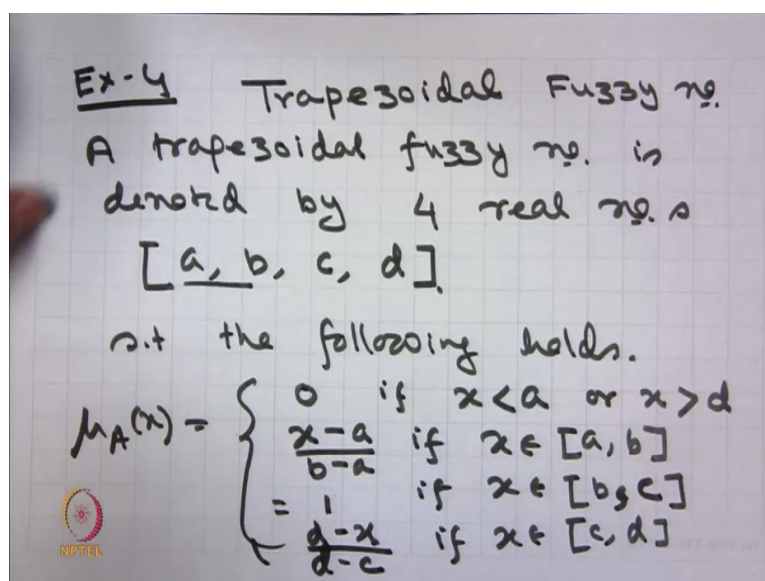 Ex-4 Trapezoidal Fuzzy no.
A trapezoidal fuzzy no. is
denoted by 4 real no.s
[a, b, c, d].
s.t the following holds.
μA(x) = { 0 if x < a or x > d
x-a/b-a if x ∈ [a, b]
= 1 if x ∈ [b, c]
d-x/d-c if x ∈ [c, d]
NPTEL